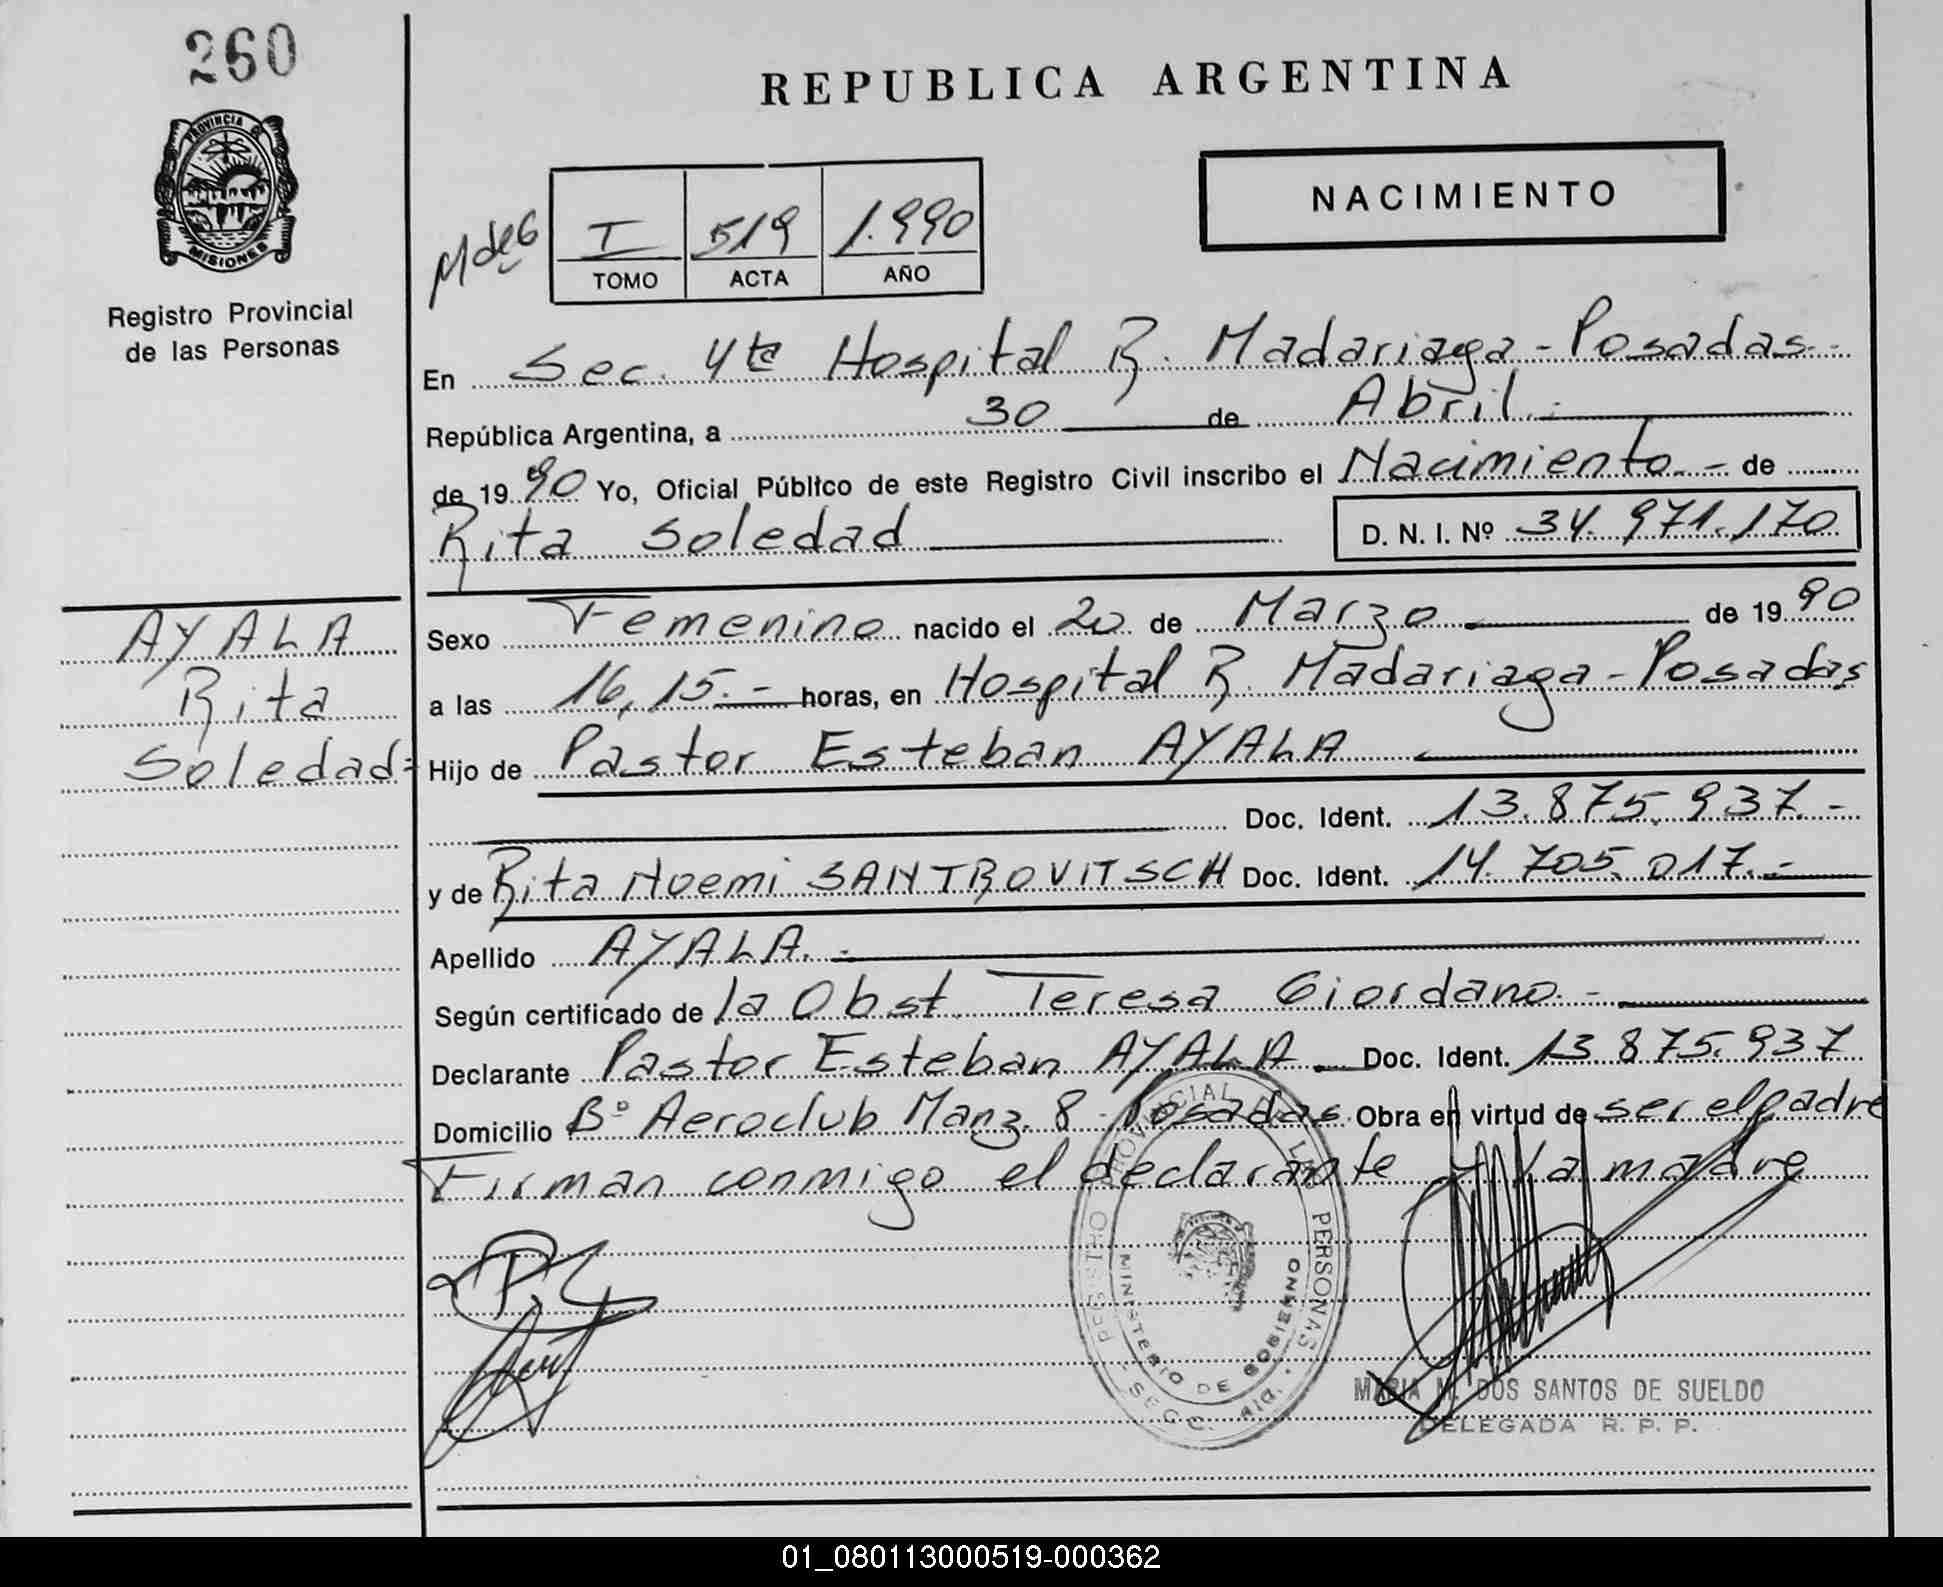 260
PROVINCIA DE
MISIONES
Registro Provincial
de las Personas
AYALA
Rita
Soledad=
REPUBLICA ARGENTINA
NACIMIENTO
I 519 1.990
TOMO ACTA AÑO
En Sec. 4ta Hospital R. Madariaga - Posadas.-
República Argentina, a 30 de Abril.-
de 19 90 Yo, Oficial Público de este Registro Civil inscribo el Nacimiento.- de
Rita Soledad D. N. I. Nº 34.971.170
Sexo Femenino nacido el 20 de Marzo de 19 90
a las 16,15.- horas, en Hospital R. Madariaga - Posadas
Hijo de Pastor Esteban AYALA
Doc. Ident. 13.875.937.-
y de Rita Noemi SANTROVITSCH Doc. Ident. 14.705.017.-
Apellido AYALA.-
Según certificado de la Obst. Teresa Giordano.-
Declarante Pastor Esteban AYALA Doc. Ident. 13.875.937
Domicilio Bº Aeroclub Manz. 8 - Posadas. Obra en virtud de ser el padre
Firman conmigo el declarante y la madre
REGISTRO PROVINCIAL DE LAS PERSONAS
MINISTERIO DE GOBIERNO
MARIA M. DOS SANTOS DE SUELDO
DELEGADA R. P. P.
01_080113000519-000362